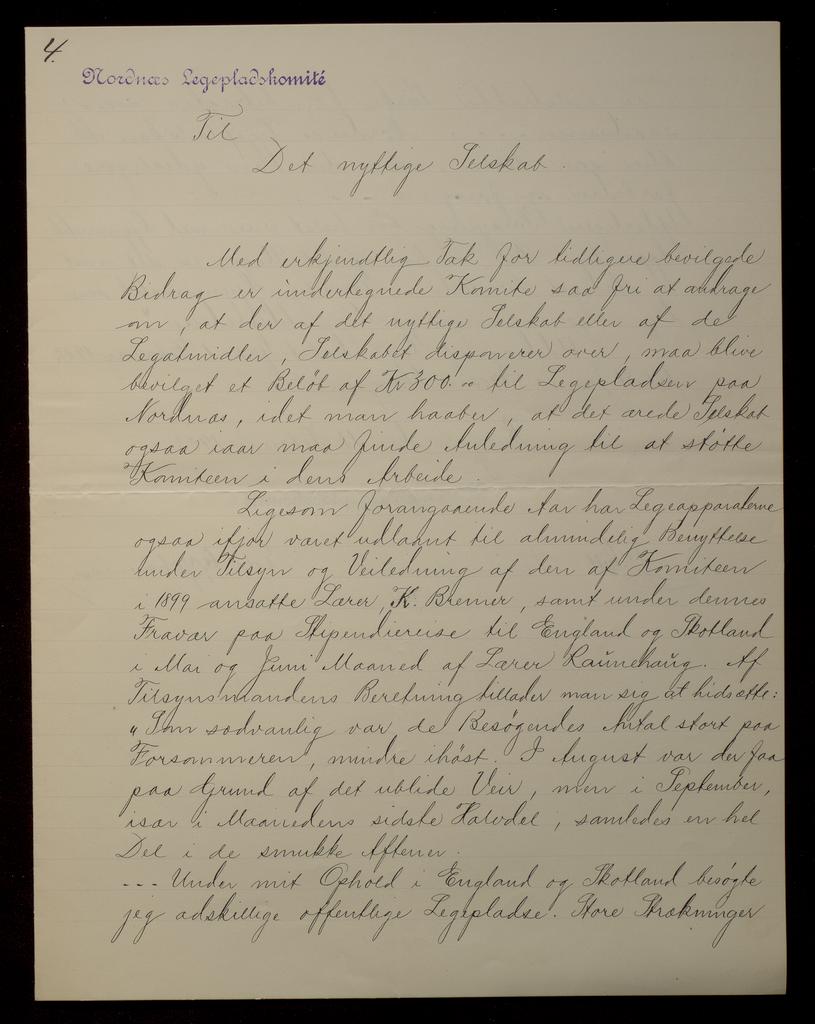 4.
Nordnæs Legepladskomité
Til
Det nyttige Selskab.
Med erkjendtlig Tak for tidligere bevilgede
Bidrag er undertegnede Komite saa fri at andrage
om, at der af det nyttige Selskab eller af de
Legatmidler, Selskabet disponerer over, maa blive
bevilget et Beløb af Kr 300.00 til Legepladsen paa
Nordnæs, idet man haaber, at det ærede Selskab
ogsaa iaar maa finde Anledning til at støtte
Komiteen i dens Arbeide.
Ligesom forangaaende Aar har Legeapparaterne
ogsaa ifjor været udlaant til almindelig Benyttelse
under Tilsyn og Veiledning af den af Komiteen
i 1899 ansatte Lærer, K. Bremer, samt under dennes
Fravær paa Stipendiereise til England og Skotland
i Mai og Juni Maaned af Lærer Raunehaug. Af
Tilsynsmandens Beretning tillader man sig at hidsætte:
"Som sædvanlig var de Besøgendes Antal stort paa
Forsommeren, mindre ihøst. I August var der faa
paa Grund af det ublide Veir, men i September,
især i Maanedens sidste Halvdel, samledes en hel
Del i de smukke Aftener.
--- Under mit Ophold i England og Skotland besøgte
jeg adskillige offentlige Legepladse. Store Strækninger